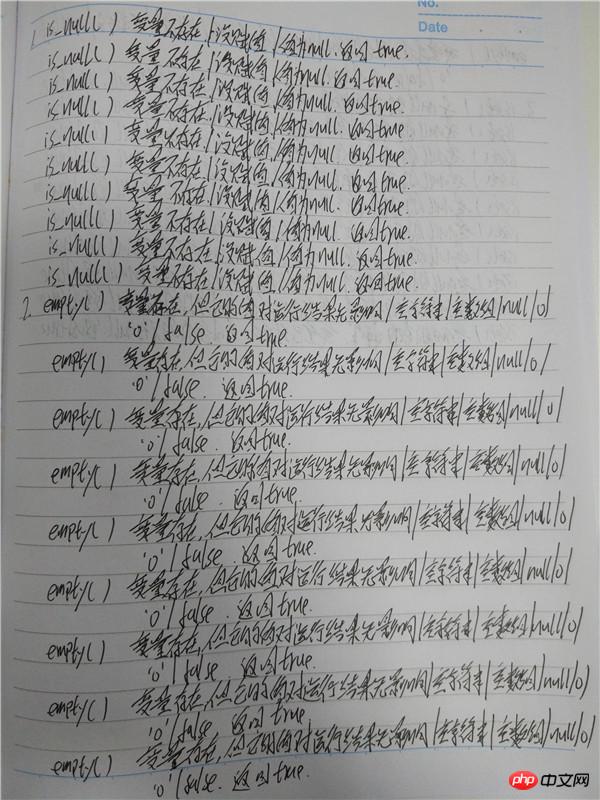 No.
Date
1. is_null() 变量不存在/没赋值/值为null. 返回true.
is_null() 变量不存在/没赋值/值为null. 返回true.
is_null() 变量不存在/没赋值/值为null. 返回true.
is_null() 变量不存在/没赋值/值为null. 返回true.
is_null() 变量不存在/没赋值/值为null. 返回true.
is_null() 变量不存在/没赋值/值为null. 返回true.
is_null() 变量不存在/没赋值/值为null. 返回true.
is_null() 变量不存在/没赋值/值为null. 返回true.
is_null() 变量不存在/没赋值/值为null. 返回true.
is_null() 变量不存在/没赋值/值为null. 返回true.
2. empty() 变量存在,但它的值对运行结果无影响/空字符串/空数组/null/0/
'0'/false. 返回true
empty() 变量存在,但它的值对运行结果无影响/空字符串/空数组/null/0/
'0'/false. 返回true.
empty() 变量存在,但它的值对运行结果无影响/空字符串/空数组/null/0/
'0'/false. 返回true.
empty() 变量存在,但它的值对运行结果无影响/空字符串/空数组/null/0/
'0'/false. 返回true.
empty() 变量存在,但它的值对运行结果无影响/空字符串/空数组/null/0/
'0'/false. 返回true.
empty() 变量存在,但它的值对运行结果无影响/空字符串/空数组/null/0/
'0'/false. 返回true.
empty() 变量存在,但它的值对运行结果无影响/空字符串/空数组/null/0/
'0'/false 返回true.
empty() 变量存在,但它的值对运行结果无影响/空字符串/空数组/null/0/
'0'/false 返回true
empty() 变量存在,但它的值对运行结果无影响/空字符串/空数组/null/0/
'0'/false. 返回true.
php 中文网